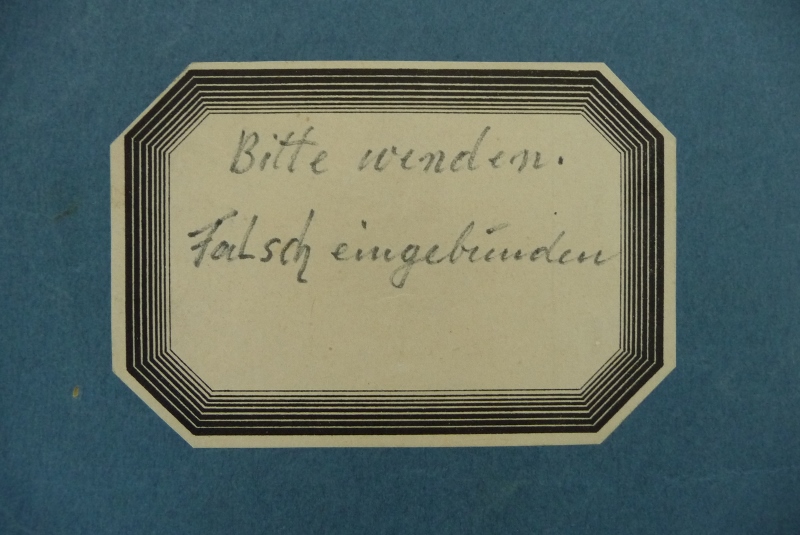 Bitte wenden.
Falsch eingebunden